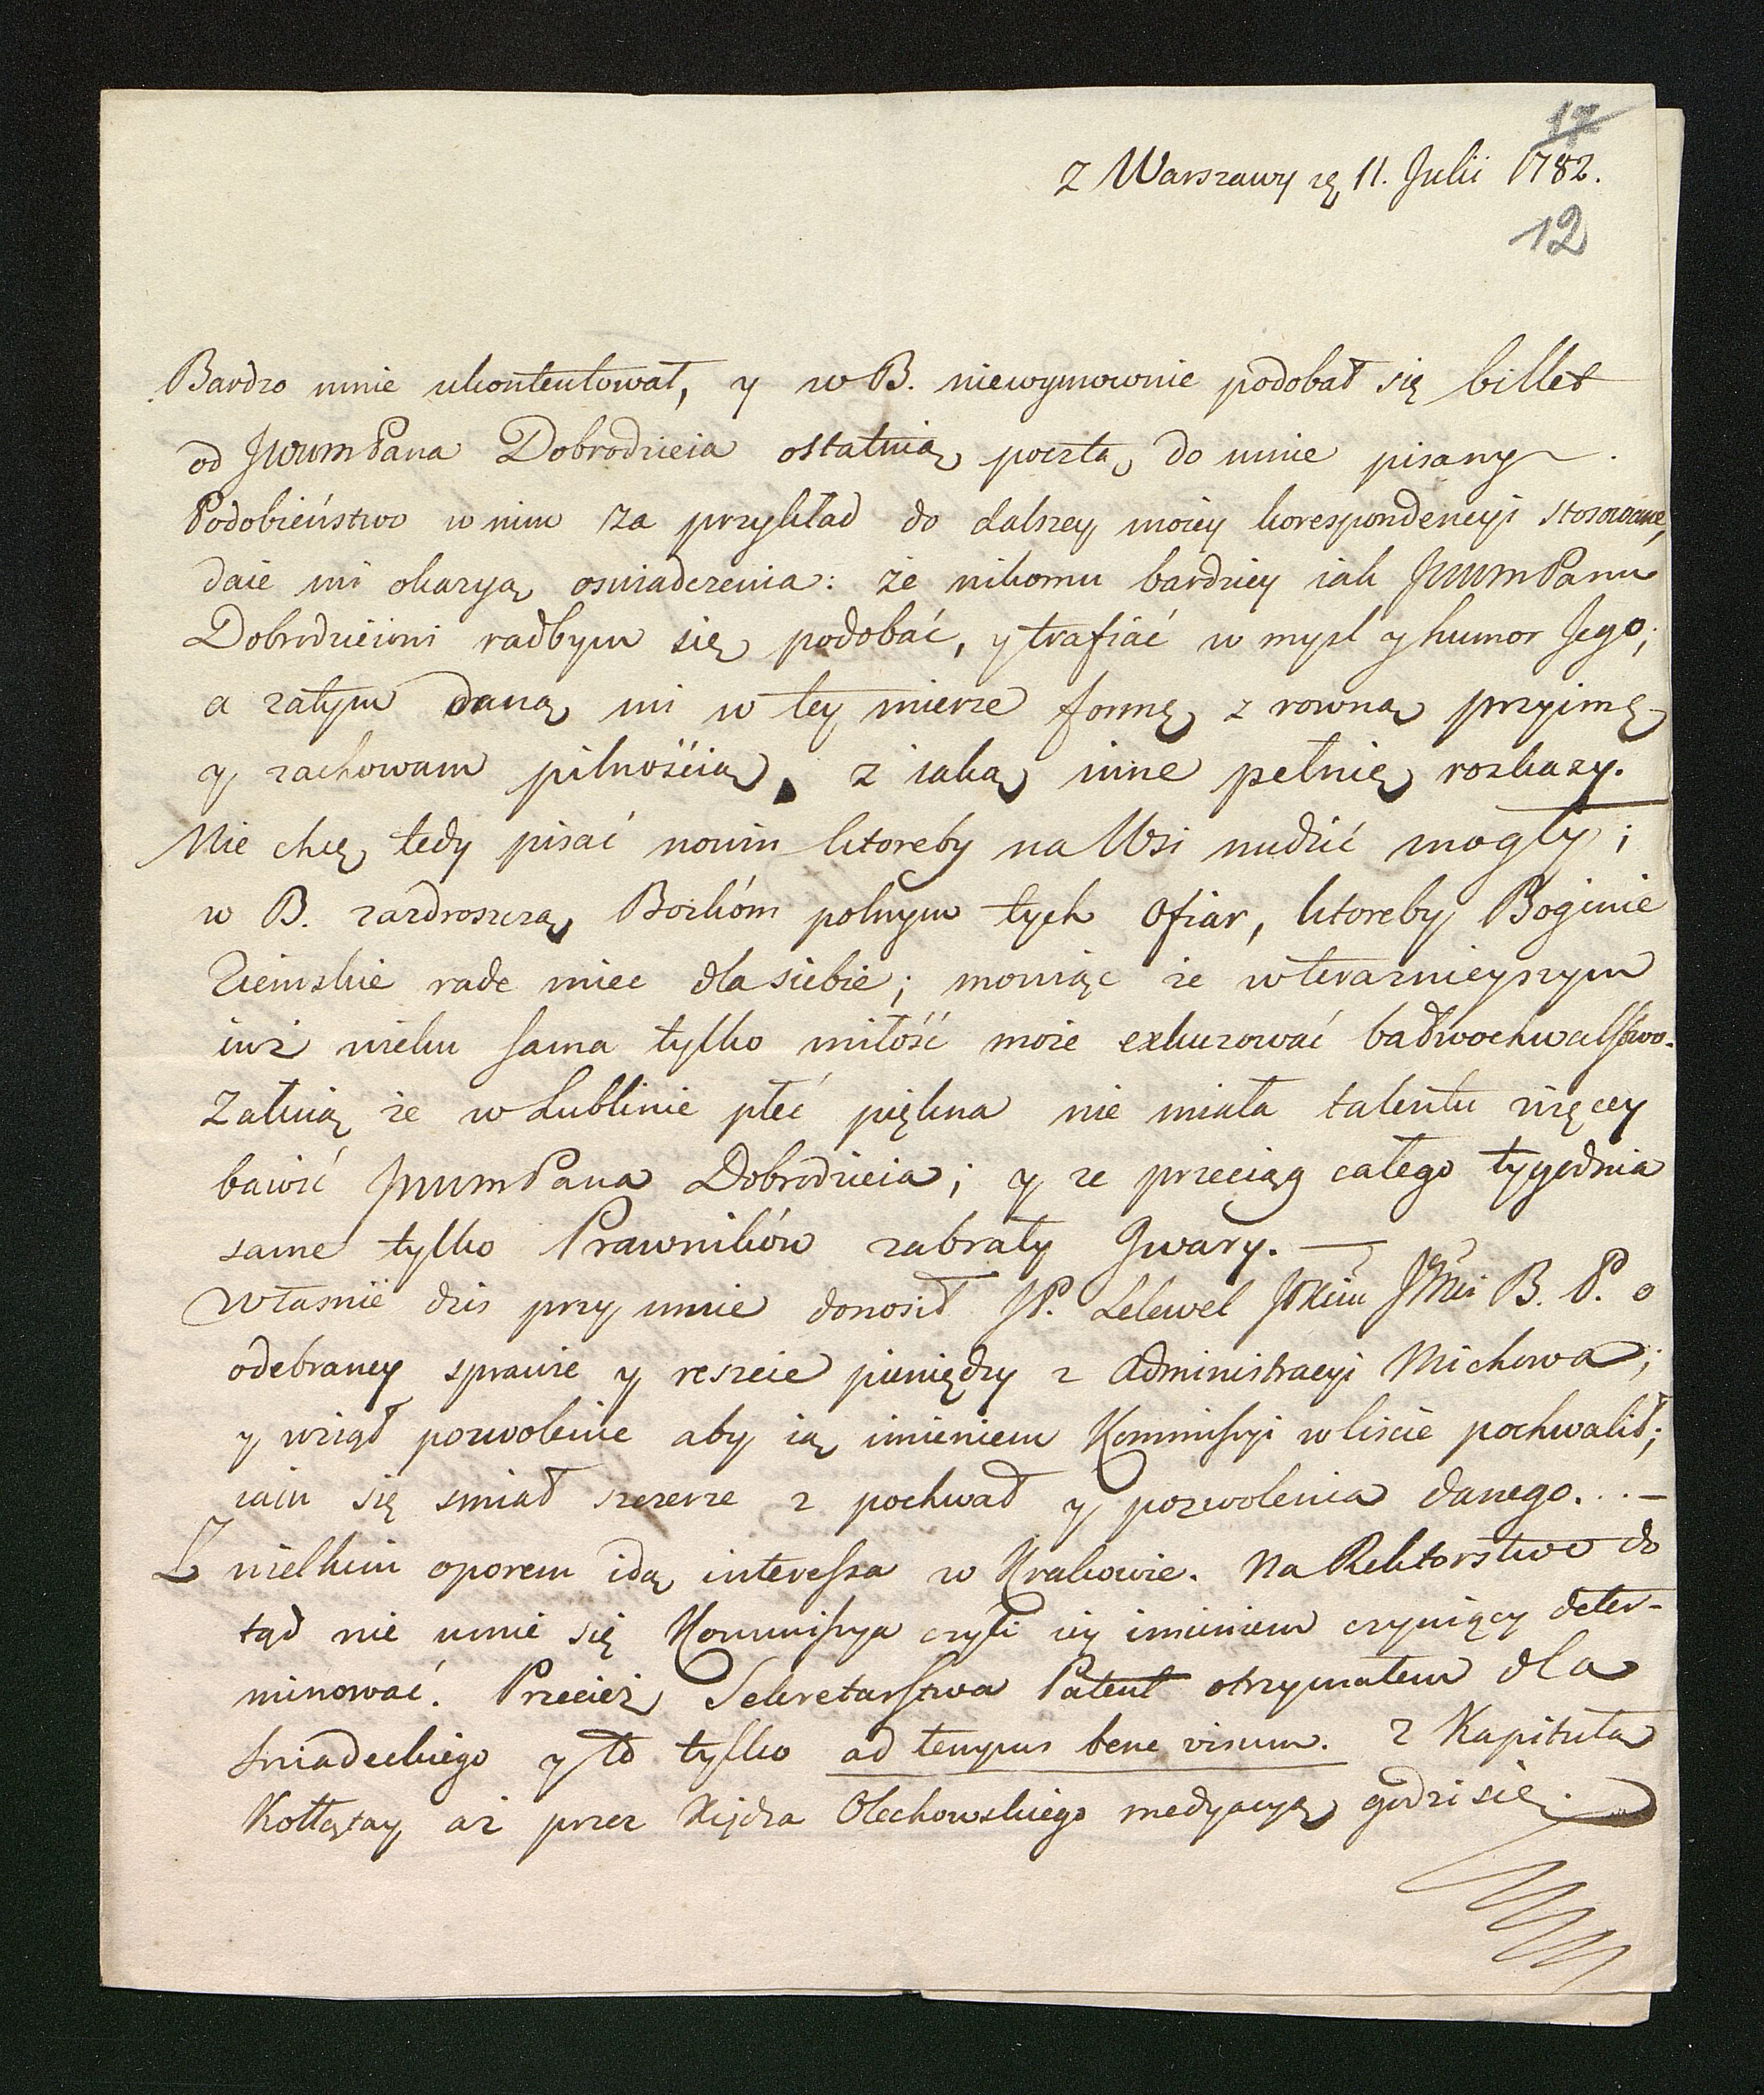 17
z Warszawy rę 11. Julii 1782.
12
Bardzo mnie ukontentował, y w B. niewymownie podobał się billet
od JWWmPana Dobrodzieia ostatnią pocztą do mnie pisany.
Podobieństwo w nim za przykład do dalszey moiey korespondencyi stosowane,
daie mi okazyą osniadczenia: że nikomu bardziey iak JWWmPanu
Dobrodzieiowi radbym się podobać, y trafiać w mysl y humor Jego;
a zatym daną mi w tey mierze formę z rowną przyimę
y zachowam pilnością, z iaką inne pełnię rozkazy.
Nie chcę tedy pisać nowin ktoreby na Wsi nudzić mogły;
w B. zazdroszczą Bożkóm polnym tych Ofiar, ktoreby Boginie
Ziemskie rade miec dla siebie; mowiąc że w teraznieyszym
iuż wieku sama tylko miłość może exkuzować bałwochwalstwo.
Załuią że w Lublinie płeć piękna nie miała talentu więcey
bawić JWWmPana Dobrodzieia; y ze przeciąg całego tygodnia
same tylko Prawników zabrały Gwary. —
Własnie dzis przy mnie donosił JP. Lelewel JXciu JMci B. P. o
odebraney sprawie y reszcie pieniędzy z Administracyi Michowa;
y wziął pozwolenie aby ią imieniem Kommissyi w liscie pochwalił;
iam się smiał szczerze z pochwał y pozwolenia danego. . . —
Z wielkim oporem idą interessa w Krakowie. Na Rektorstwo do
tąd nie umie się Kommissya czyli iey imieniem czyniący deter-
minować. Przecież Sekretarstwa Patent otrzymałem dla
Sniadeckiego y to tylko ad tempus bene visum. Z Kapitułą
Kołłątay aż przez Xiędza Olechowskiego medyacyą godzi się.